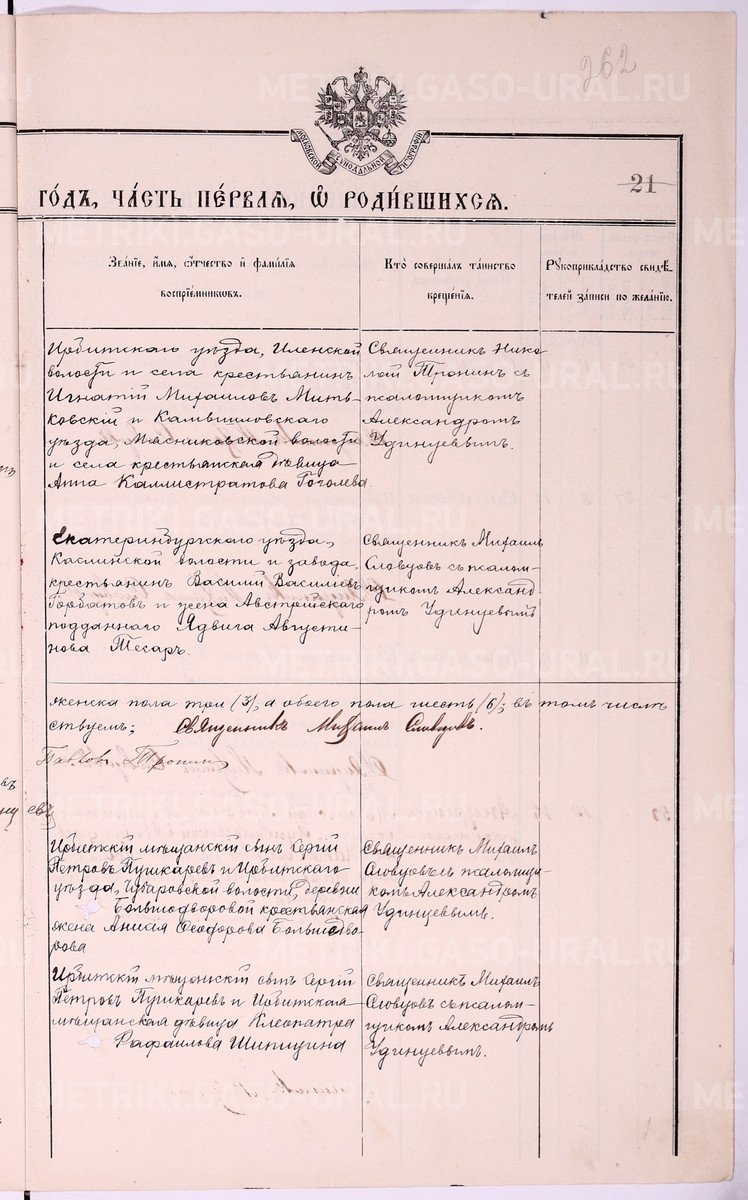 262
МОСКОВСКОЙ СѴНОДАЛЬНОЙ ТИПОГРАФІИ
21
ГО́ДЪ, ЧА́СТЬ ПЕ́РВАЯ, Ѡ҆ РОДИ́ВШИХСЯ.
Зва́нїе, и҆́мя, ѻ҆́тчество и҆ фами́лїя
воспрїе́мникѡвъ.
Кто̀ соверша́лъ та́инство
креще́нїя.
Рꙋкоприкла́дство свидѣ́-
телей за́писи по жела́нїю.
Ирбитскаго уѣзда, Иленской
волости и села крестьянинъ
Игнатій Михаиловъ Мить-
ковскій и Камышловскаго
уѣзда, Мясниковской волости
и села крестьянская дѣвица
Анна Каллистратова Гоголева.
Священникъ Нико
лай Тронинъ съ
псаломщикомъ
Александромъ
Удинцевымъ.
Екатеринбургскаго уѣзда,
Каслинской волости и завода,
крестьянинъ Василій Васильевъ
Горбатовъ и жена Австрійскаго
подданнаго Ядвига Августи-
нова Тесаръ.
Священникъ Михаилъ
Словцовъ съ псалом-
щикомъ Александ
ромъ Удинцевымъ
женска пола три (3), а обоего пола шесть (6); въ томъ числѣ
ствуемъ; Священникъ Михаилъ Словцовъ.
Тронинъ
Ирбитскій мѣщанскій сынъ Сергій
Петровъ Пушкаревъ и Ирбитскаго
уѣзда, Чубаровской волости, деревни
Большедворовой крестьянская
жена Анисія Ѳеодорова Большедво-
рова
Священникъ Михаилъ
Словцовъ съ псаломщи-
комъ Александромъ
Удинцевымъ.
Ирбитскій мѣщанскій сынъ Сергій
Петровъ Пушкаревъ и Ирбитская
мѣщанская дѣвица Клеопатра
Рафаилова Шипицина
Священникъ Михаилъ
Словцовъ съ псалом-
щикомъ Александромъ
Удинцевымъ.
METRIKI.GASO-URAL.RU